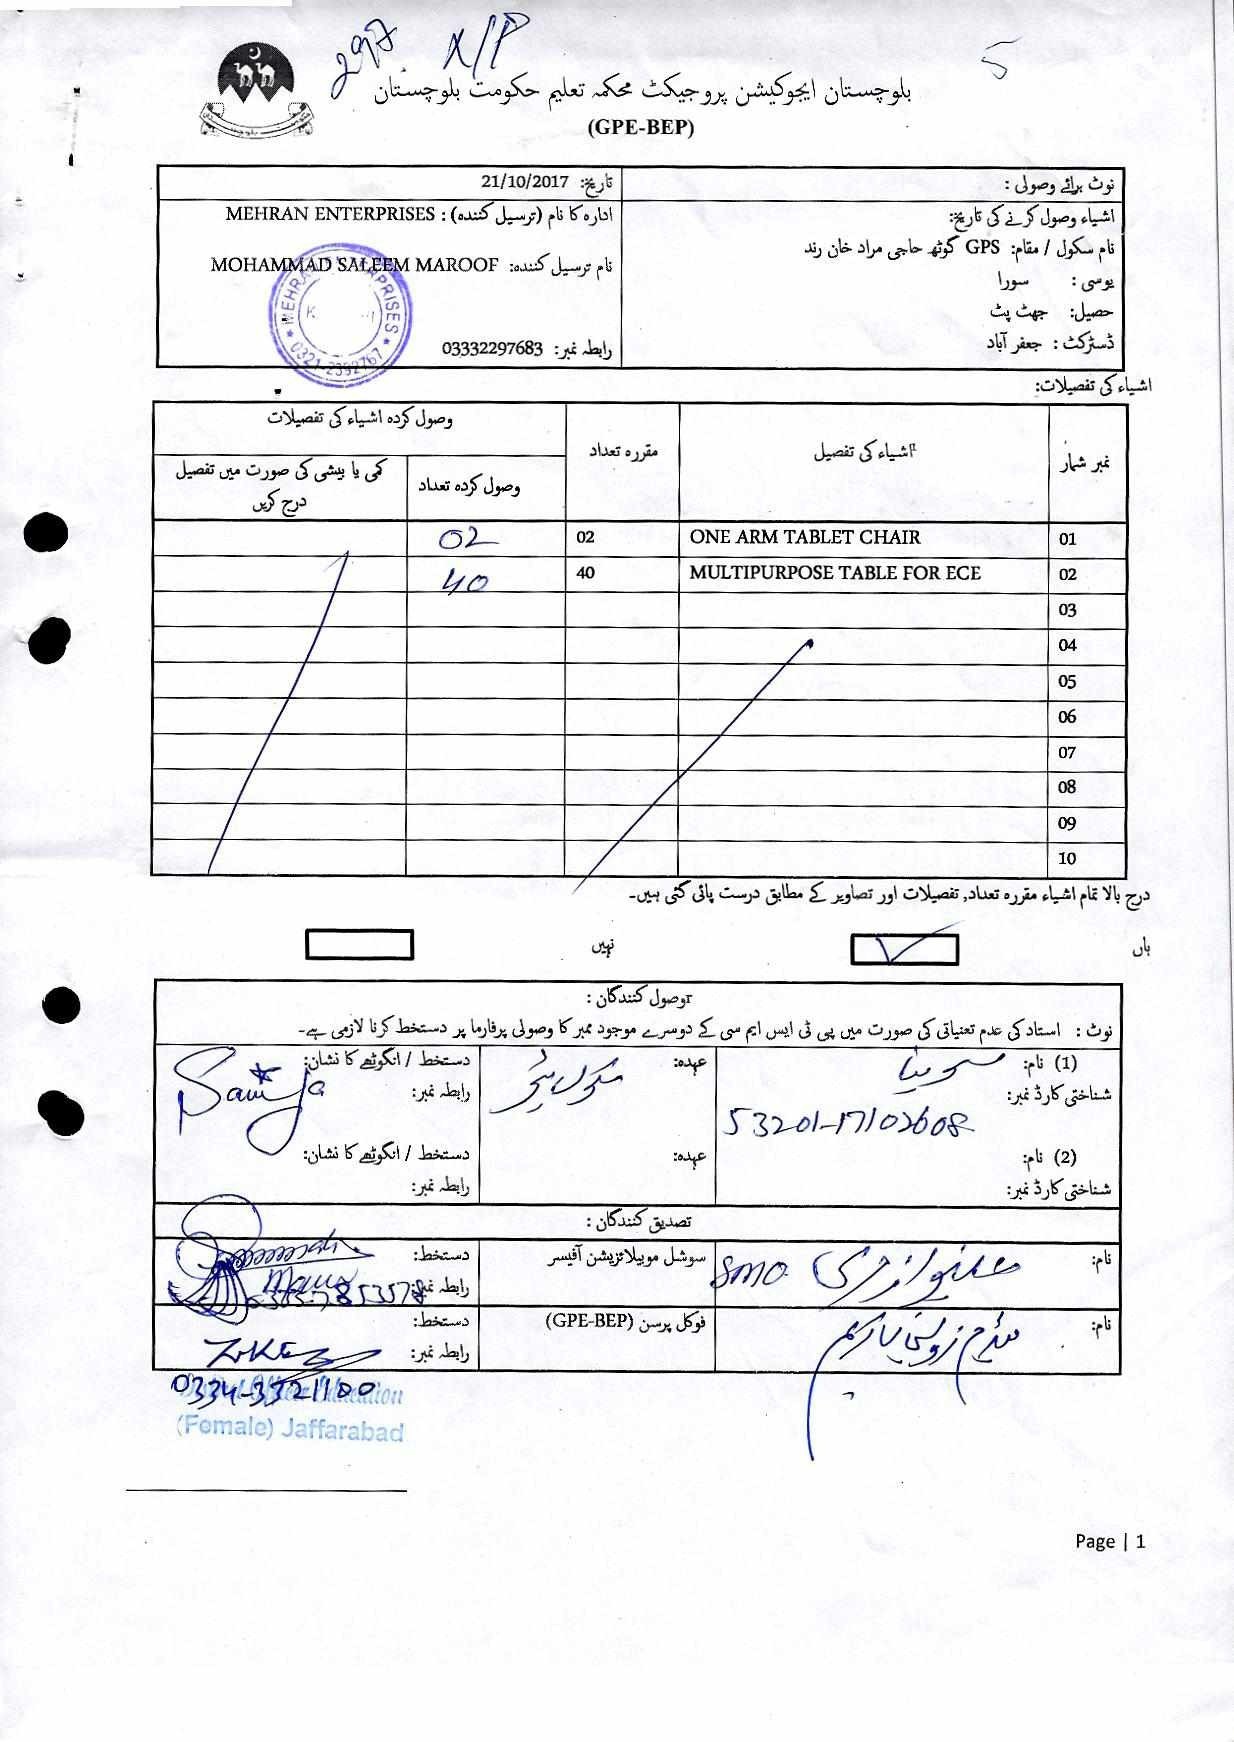 297 X/P 5
بلوچستان ایجوکیشن پروجیکٹ محکمہ تعلیم حکومت بلوچستان
(GPE-BEP)
نوٹ برائے وصولی :
اشیاء وصول کرنے کی تاریخ:
نام سکول / مقام: GPS گوٹھ حاجی مراد خان رند
یوسی : سورا
حصیل: جھٹ پٹ
ڈسٹرکٹ : جعفر آباد
تاریخ: 21/10/2017
ادارہ کا نام (ترسیل کنندہ) : MEHRAN ENTERPRISES
نام ترسیل کنندہ: MOHAMMAD SALEEM MAROOF
رابطہ نمبر: 03332297683
MEHRAN ENTERPRISES
0321-2392767
اشیاء کی تفصیلات:
نمبر شمار اشیاء کی تفصیل مقررہ تعداد وصول کردہ اشیاء کی تفصیلات
وصول کردہ تعداد کمی یا بیشی کی صورت میں تفصیل درج کریں
01 ONE ARM TABLET CHAIR 02 02
02 MULTIPURPOSE TABLE FOR ECE 40 40
03
04
05
06
07
08
09
10
درج بالا تمام اشیاء مقررہ تعداد, تفصیلات اور تصاویر کے مطابق درست پائی گئی ہیں۔
ہاں نہیں
وصول کنندگان :
نوٹ : استاد کی عدم تعنیاتی کی صورت میں پی ٹی ایس ایم سی کے دوسرے موجود ممبر کا وصولی پرفارما پر دستخط کرنا لازمی ہے۔
(1) نام: عہدہ: دستخط / انگوٹھے کا نشان:
شناختی کارڈ نمبر: 53201-17102608 رابطہ نمبر:
(2) نام: عہدہ: دستخط / انگوٹھے کا نشان:
شناختی کارڈ نمبر: رابطہ نمبر:
تصدیق کنندگان :
نام: SMO سوشل موبیلائزیشن آفیسر دستخط:
رابطہ نمبر:
نام: فوکل پرسن (GPE-BEP) دستخط:
رابطہ نمبر:
0334-3321100
(Female) Jaffarabad
Page | 1